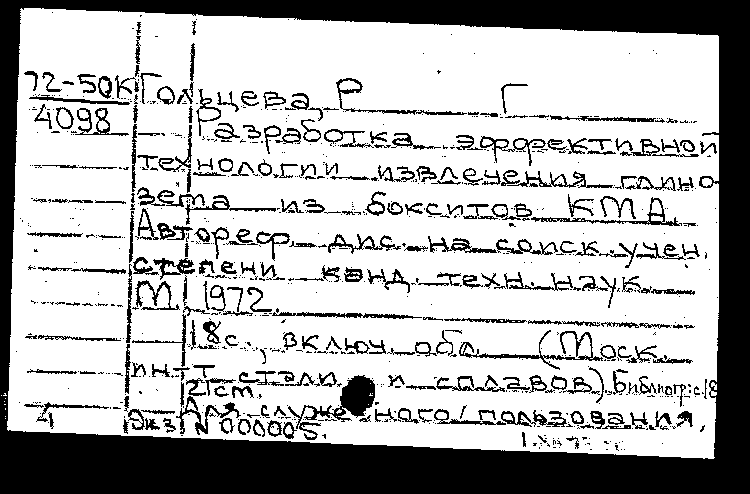 72-50К Гольцева, Р Г
4098 Разработка эффективной
технологии извлечения глино-
зета из бокситов КМА.
Автореф. дис. на соиск. учен.
степени канд. техн. наук.
М., 1972.
18 с., включ. обл. (Моск.
ин-т стали и сплавов) Библиогр: с. 18
21 см.
Для служебного пользования.
4 Экз N 000005.